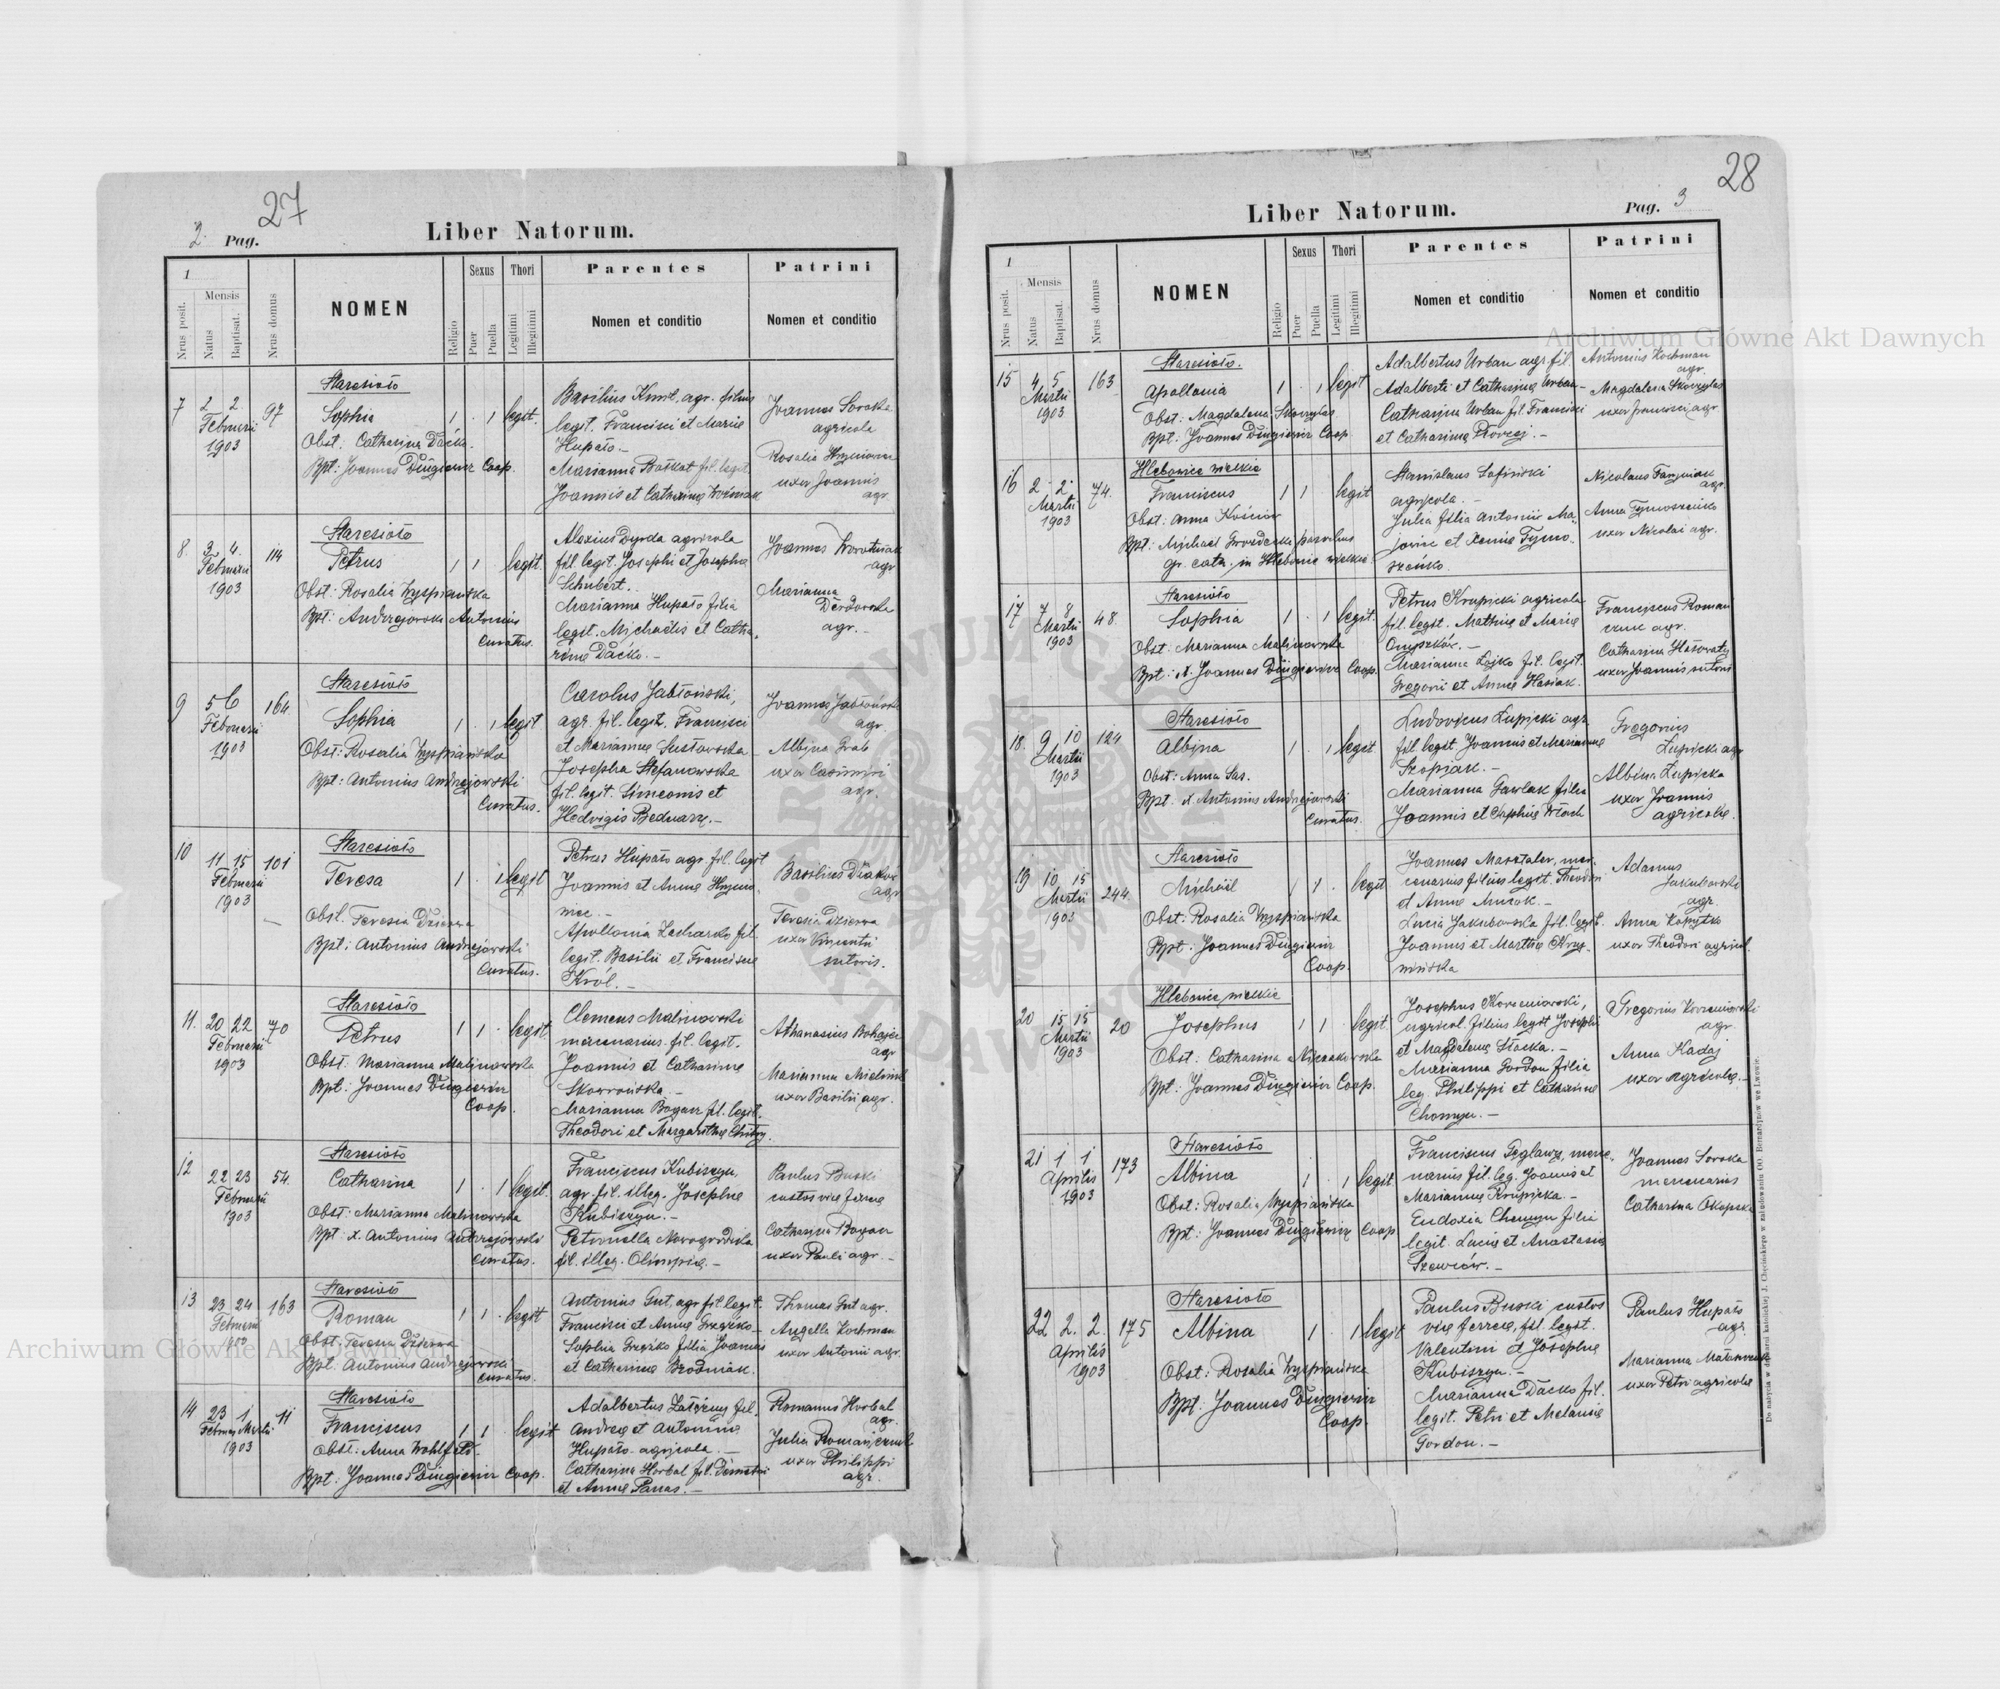 27
2. Pag.
Liber Natorum.
1
Nrus posit.
Mensis
Natus
Baptisat.
Nrus domus
NOMEN
Religio
Sexus
Puer
Puella
Thori
Legitimi
Illegitimi
Parentes
Nomen et conditio
Patrini
Nomen et conditio
7 2. 2. Februarii 1903 97
Staresioło
Sophia 1 . 1 legit.
Obst. Catharina Daćko.
Bpt: Joannes Coop.
Basilius agr. filius
legit. Francisci et Mariæ
Hupało.-
Marianna fil. legit.
Joannis et Catharinæ Woźniak
Joannes Soroka
agricola
Rosalia
uxor Joannis
agr.
8. 3. 4. Februarii 1903 114
Staresioło
Petrus 1 1 legit.
Obst: Rosalia Wyspiańska
Bpt: Antonius
Curatus.
Alexius Dyrda agricola
fil. legit. Josephi et Josephæ
Schubert.
Marianna Hupało filia
legit. Michaelis et Catha,
rinæ Daćko. -
Joannes
agr
Marianna
agr. -
9 5 6 Februarii 1903 164.
Staresioło
Sophia 1 . 1 legit
Obst: Rosalia Wyspiańska
Bpt: Antonius Andrejowski
Curatus.
Carolus Jabłoński,
agr. fil. legit. Francisci
et Mariannæ
Josepha Stefanowska
fil. legit. Simeonis et
Hedvigis Bednarz. -
Joannes Jabłoński
agr.
Albina Grab
uxor Casimiri
agr.
10 11 15 Februarii 1903 101
Staresioło
Teresa 1 . 1 legit
Obst. Teresia Dzierwa
Bpt: Antonius Andrejowski
Curatus.
Petrus Hupało agr. fil. legit
Joannis et Annæ
niec. -
Apollonia fil.
legit. Basilii et Franciscæ
Król. -
Basilius
agr
Teresia Dzierwa
uxor Vincentii
sutoris.
11. 20 22 Februarii 1903 70
Staresioło
Petrus 1 1 . legit.
Obst: Marianna Malinowska
Bpt: Joannes
Coop.
Clemens Malinowski
mercenarius. fil. legit.
Joannis et Catharinæ
Skowrońska -
Marianna Bogacz fil. legit.
Theodori et Margarithæ
Athanasius
agr
Marianna
uxor Basilii agr.
12 22 23 Februarii 1903 54.
Staresioło
Catharina 1 . 1 legit.
Obst: Marianna Malinowska
Bpt: x. Antonius Andrejowski
Curatus.
Franciscus Kubiszyn
agr. fil. illeg. Josephæ
Kubiszyn. -
Petronella Nowogrodzka
fil. illeg. Olimpiæ. -
Paulus Buski
custos viæ ferreæ
Catharina Bogacz
uxor Pauli agr. -
13 23 24 Februarii 163
Staresioło
Roman 1 1 . legit
Obst: Teresia Dzierwa
Bpt. Antonius Andrejowski
Curatus.
Antonius Gut, agr fil legit.
Francisci et Annæ Grzeszko -
Sophia Grzeszko filia Joannis
et Catharinæ Woźniak.
Thomas Gut agr.
Angella Kochman
uxor Antonii agr.
14 23 1 Martii 1903 11
Staresioło
Franciscus 1 1 . legit
Obst: Anna
Bpt. Joannes Coop.
Adalbertus fil.
Andreæ et Antoninæ
Hupało agricola. -
Catharina Horbal fil. Demetri
et Annæ Panas. -
Romanus Horbal
agr.
Julia
uxor Philippi
agr.
28
Pag. 3
Liber Natorum.
1
Nrus posit.
Mensis
Natus
Baptisat.
Nrus domus
NOMEN
Religio
Sexus
Puer
Puella
Thori
Legitimi
Illegitimi
Parentes
Nomen et conditio
Patrini
Nomen et conditio
15 4 5 Martii 1903 163
Staresioło.
Apollonia 1 . 1 legit
Obst. Magdalena
Bpt: Joannes Coop.
Adalbertus Urban agr. fil.
Adalberti et Catharinæ Urban -
Catharina Urban fil. Francisci
et Catharinæ
Antonius Kochman
agr.
Magdalena
uxor Francisci agr.
16 2 2 Martii 1903 74.
Hlebowice wielkie
Franciscus 1 1 legit
Obst: Anna
Bpt: Michael parochus
gr. cath. in Hlebowice wielkie.
Stanislaus
agricola. -
Julia filia Antonii
et Xeniæ Tymo,
szeńko.
Nicolaus
agr.
Anna Tymoszeńko
uxor Nicolai agr.
17 7 8 Martii 1903 48.
Staresioło
Sophia 1 . 1 legit.
Obst: Marianna Malinowska
Bpt: x. Joannes Coop.
Petrus Krupicki agricola
fil. legit. Mathiæ et Mariæ
Marianna Łojko fil. legit.
Gregorii et Annæ Hasiak.
Franciscus Roman
czuk agr.
Catharina
uxor Joannis sutoris
18. 9 10 Martii 1903 124
Staresioło
Albina 1 . 1 legit.
Obst: Anna Sas.
Bpt. x. Antonius Andrejowski
Curatus.
Ludovicus Łupicki agr.
fil. legit. Joannis et Mariannæ
Szopiak. -
Marianna Pawlak filia
Joannis et Sophiæ Włoch
Gregorius
Łupicki agr
Albina Łupicka
uxor Joannis
agricolæ.
19 10 15 Martii 1903 244.
Staresioło
Michäel 1 1 . legit
Obst: Rosalia Wyspiańska
Bpt: Joannes
Coop.
Joannes Marszałek, mer-
cenarius filius legit. Theodori
et Annæ -
Lucia Jakubowska fil. legit.
Joannis et Marthæ
Adamus
Jakubowski
agr.
Anna Kopytko
uxor Theodori agricol.
20 15 15 Martii 1903 20
Hlebowice wielkie
Josephus 1 1 . legit.
Obst: Catharina
Bpt: Joannes Coop.
Josephus Korzeniowski,
agricol. filius legit Josephi
et Magdalenæ Słocka. -
Marianna Gordon filia
leg. Philippi et Catharinæ
Chomyn. -
Gregorius Korzeniowski
agr.
Anna Kadaj
uxor agricolæ. -
21 1 1 Aprilis 1903 173
Staresioło
Albina 1 . 1 legit
Obst: Rosalia Wyspiańska
Bpt: Joannes Coop
Franciscus Ceglarz, merce-
narius fil. leg. Joannis et
Mariannæ Krupicka. -
Eudoxia Chomyn filia
legit. Lucæ et Anastasiæ
Szewców. -
Joannes Soroka
mercenarius
Catharina
22 2. 2. Aprilis 1903 175
Staresioło
Albina 1 . 1 legit
Obst: Rosalia Wyspiańska
Bpt. Joannes
Coop.
Paulus Buski custos
viæ ferreæ, fil. legit.
Valentini et Josephæ
Kubiszyn. -
Marianna Daćko fil.
legit. Petri et Melaniæ
Gordon. -
Paulus Hupało
agr.
Marianna
uxor Petri agricolæ
Archiwum Główne Akt Dawnych
Archiwum Główne Akt Dawnych